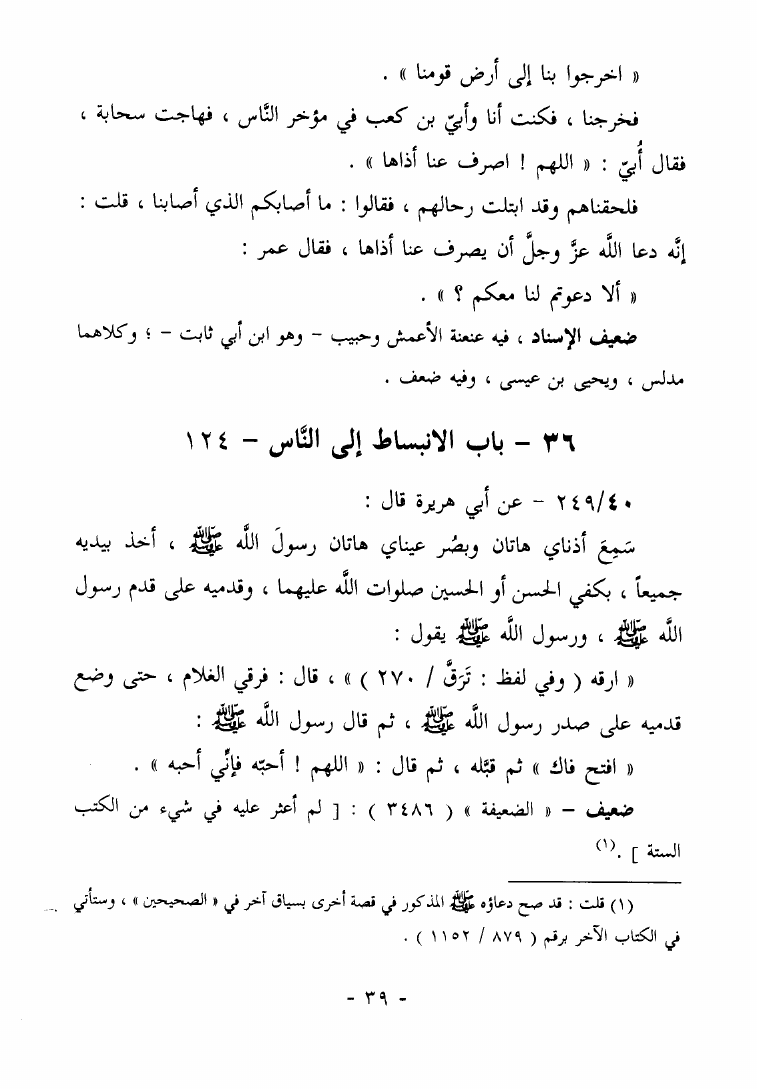 « اخرجوا بنا إلى أرض قومنا » .
فخرجنا ، فكنت أنا وأبيّ بن كعب في مؤخر النَّاس ، فهاجت سحابة ،
فقال أُبيّ : « اللهم ! اصرف عنا أذاها » .
فلحقناهم وقد ابتلت رحالهم ، فقالوا : ما أصابكم الذي أصابنا ، قلت :
إنَّه دعا اللَّه عزَّ وجلَّ أن يصرف عنا أذاها ، فقال عمر :
« ألا دعوتم لنا معكم ؟ » .
ضعيف الإسناد ، فيه عنعنة الأعمش وحبيب - وهو ابن أبي ثابت - ؛ وكلاهما
مدلس ، ويحيى بن عيسى ، وفيه ضعف .
٣٦ - باب الانبساط إلى النَّاس - ١٢٤
٢٤٩/٤٠ - عن أبي هريرة قال :
سَمِعَ أذناي هاتان وبصُر عيناي هاتان رسولَ اللَّه ﷺ ، أخذ بيديه
جميعاً ، بكفي الحسن أو الحسين صلوات اللَّه عليهما ، وقدميه على قدم رسول
اللَّه ﷺ ، ورسول اللَّه ﷺ يقول :
« ارقه ( وفي لفظ : تَرَقَّ / ٢٧٠ ) » ، قال : فرقي الغلام ، حتى وضع
قدميه على صدر رسول اللَّه ﷺ ، ثم قال رسول اللَّه ﷺ :
« افتح فاك » ثم قبَّله ، ثم قال : « اللهم ! أحبّه فإنِّي أحبه » .
ضعيف - « الضعيفة » ( ٣٤٨٦ ) : [ لم أعثر عليه في شيء من الكتب
الستة ] .(١)
(١) قلت : قد صح دعاؤه ﷺ المذكور في قصة أخرى بسياق آخر في « الصحيحين » ، وستأتي
في الكتاب الآخر برقم ( ٨٧٩ / ١١٥٢ ) .
- ٣٩ -